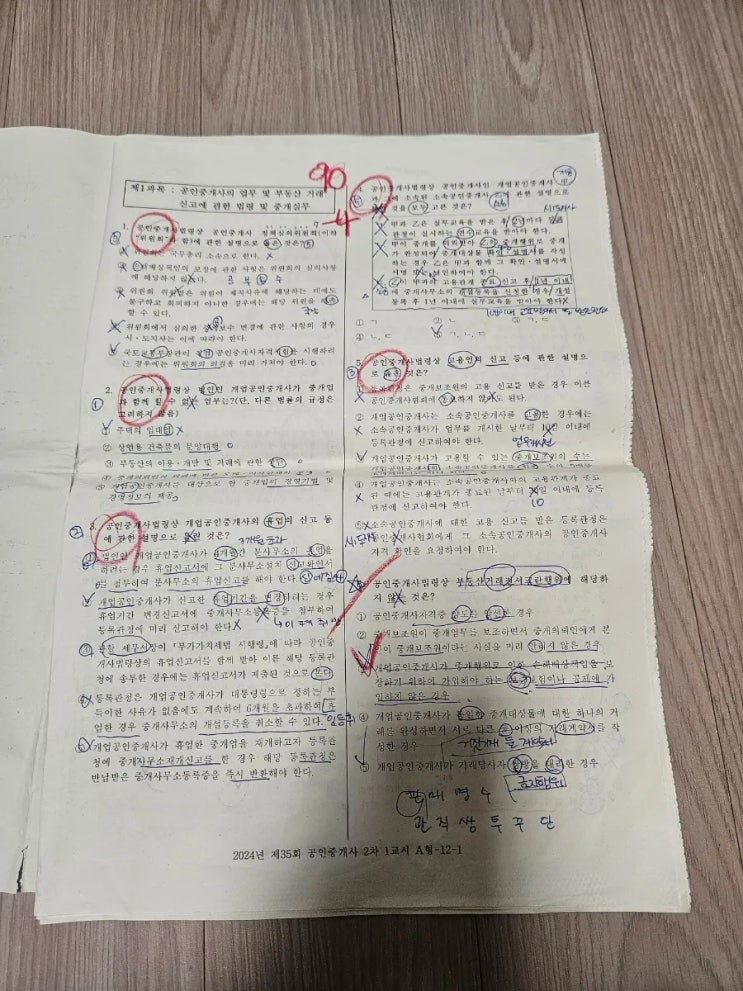 90
-4
제1과목 : 공인중개사의 업무 및 부동산 거래
신고에 관한 법령 및 중개실무
1. 공인중개사법령상 공인중개사 정책심의위원회(이하
"위원회"라 함)에 관한 설명으로 옳은 것은?
① 위원회는 국무총리 소속으로 한다.
② 손해배상책임의 보장에 관한 사항은 위원회의 심의사항
에 해당하지 않는다.
③ 위원회 위원장은 위원이 제척사유에 해당하는 데에도
불구하고 회피하지 아니한 경우에는 해당 위원을
할 수 있다.
④ 위원회에서 심의한 중개보수 변경에 관한 사항의 경우
시·도지사는 이에 따라야 한다.
⑤ 국토교통부장관이 직접 공인중개사자격시험을 시행하려
는 경우에는 위원회의 의결을 미리 거쳐야 한다.
2. 공인중개사법령상 법인인 개업공인중개사가 중개업
과 함께 할 수 없는 업무는?(단, 다른 법률의 규정은
고려하지 않음)
① 주택의 임대업
② 상업용 건축물의 분양대행
③ 부동산의 이용·개발 및 거래에 관한 상담
⑤ 개업공인중개사를 대상으로 한 중개업의 경영기법 및
경영정보의 제공
3. 공인중개사법령상 개업공인중개사의 휴업의 신고 등
에 관한 설명으로 틀린 것은?
3개월 초과
① 법인인 개업공인중개사가 4개월간 분사무소의 휴업을
하려는 경우 휴업신고서에 그 분사무소설치 신고확인서
를 첨부하여 분사무소의 휴업신고를 해야 한다.
② 개업공인중개사가 신고한 휴업기간을 변경하려는 경우
휴업기간 변경신고서에 중개사무소등록증을 첨부하여
등록관청에 미리 신고해야 한다.
③ 관할 세무서장이 「부가가치세법 시행령」에 따라 공인중
개사법령상의 휴업신고서를 함께 받아 이를 해당 등록관
청에 송부한 경우에는 휴업신고서가 제출된 것으로 본다.
④ 등록관청은 개업공인중개사가 대통령령으로 정하는 부
득이한 사유가 없음에도 계속하여 6개월을 초과하여 휴
업한 경우 중개사무소의 개설등록을 취소할 수 있다.
⑤ 개업공인중개사가 휴업한 중개업을 재개하고자 등록관
청에 중개사무소재개신고를 한 경우 해당 등록관청은
반납받은 중개사무소등록증을 즉시 반환해야 한다.
4. 공인중개사법령상 공인중개사인 개업공인중개사 甲
과 그에 소속된 소속공인중개사 乙에 관한 설명으로
것을 모두 고른 것은?
ㄱ. 甲과 乙은 실무교육을 받은 후 2년마다
관청이 실시하는 연수교육을 받아야 한다.
ㄴ. 甲이 중개를 의뢰받아 乙의 중개행위로 중개
가 완성되어 중개대상물 확인·설명서를 작성
하는 경우 乙은 甲과 함께 그 확인·설명서에
서명 또는 날인하여야 한다.
ㄷ. 乙이 甲과의 고용관계 종료 신고 후 1년 이내
에 중개사무소의 개설등록을 신청한 경우 개설
등록 후 1년 이내에 실무교육을 받아야 한다.
① ㄱ
② ㄴ
③ ㄱ, ㄷ
④ ㄴ, ㄷ
⑤ ㄱ, ㄴ, ㄷ
5. 공인중개사법령상 고용인의 신고 등에 관한 설명으
로 옳은 것은?
① 등록관청은 중개보조원의 고용 신고를 받은 경우 이를
공인중개사협회에 통보하지 않아도 된다.
② 개업공인중개사는 소속공인중개사를 고용한 경우에는
소속공인중개사가 업무를 개시한 날부터 10일 이내에
등록관청에 신고하여야 한다.
업무개시전
③ 개업공인중개사가 고용할 수 있는 중개보조원의 수는
④ 개업공인중개사는 소속공인중개사와의 고용관계가 종료
된 때에는 고용관계가 종료된 날부터 일 이내에 등록
관청에 신고하여야 한다.
10
⑤ 소속공인중개사에 대한 고용 신고를 받은 등록관청은
공인중개사협회에게 그 소속공인중개사의 공인중개사
자격 확인을 요청하여야 한다.
공인중개사법령상 부동산거래질서교란행위에 해당하
지 않는 것은?
① 공인중개사자격증 양도를 알선한 경우
② 중개보조원이 중개업무를 보조하면서 중개의뢰인에게 본
인이 중개보조원이라는 사실을 미리 알리지 않은 경우
③ 개업공인중개사가 중개행위로 인한 손해배상책임을 보
장하기 위하여 가입해야 하는 보증보험이나 공제에 가
입하지 않은 경우
④ 개업공인중개사가 동일한 중개대상물에 대한 하나의 거
래를 완성하면서 서로 다른 둘 이상의 거래계약서를 작
성한 경우
⑤ 개업공인중개사가 거래당사자 쌍방을 대리한 경우
금지행위
판매명수
관직쌍투꾸단
2024년 제35회 공인중개사 2차 1교시 A형-12-1